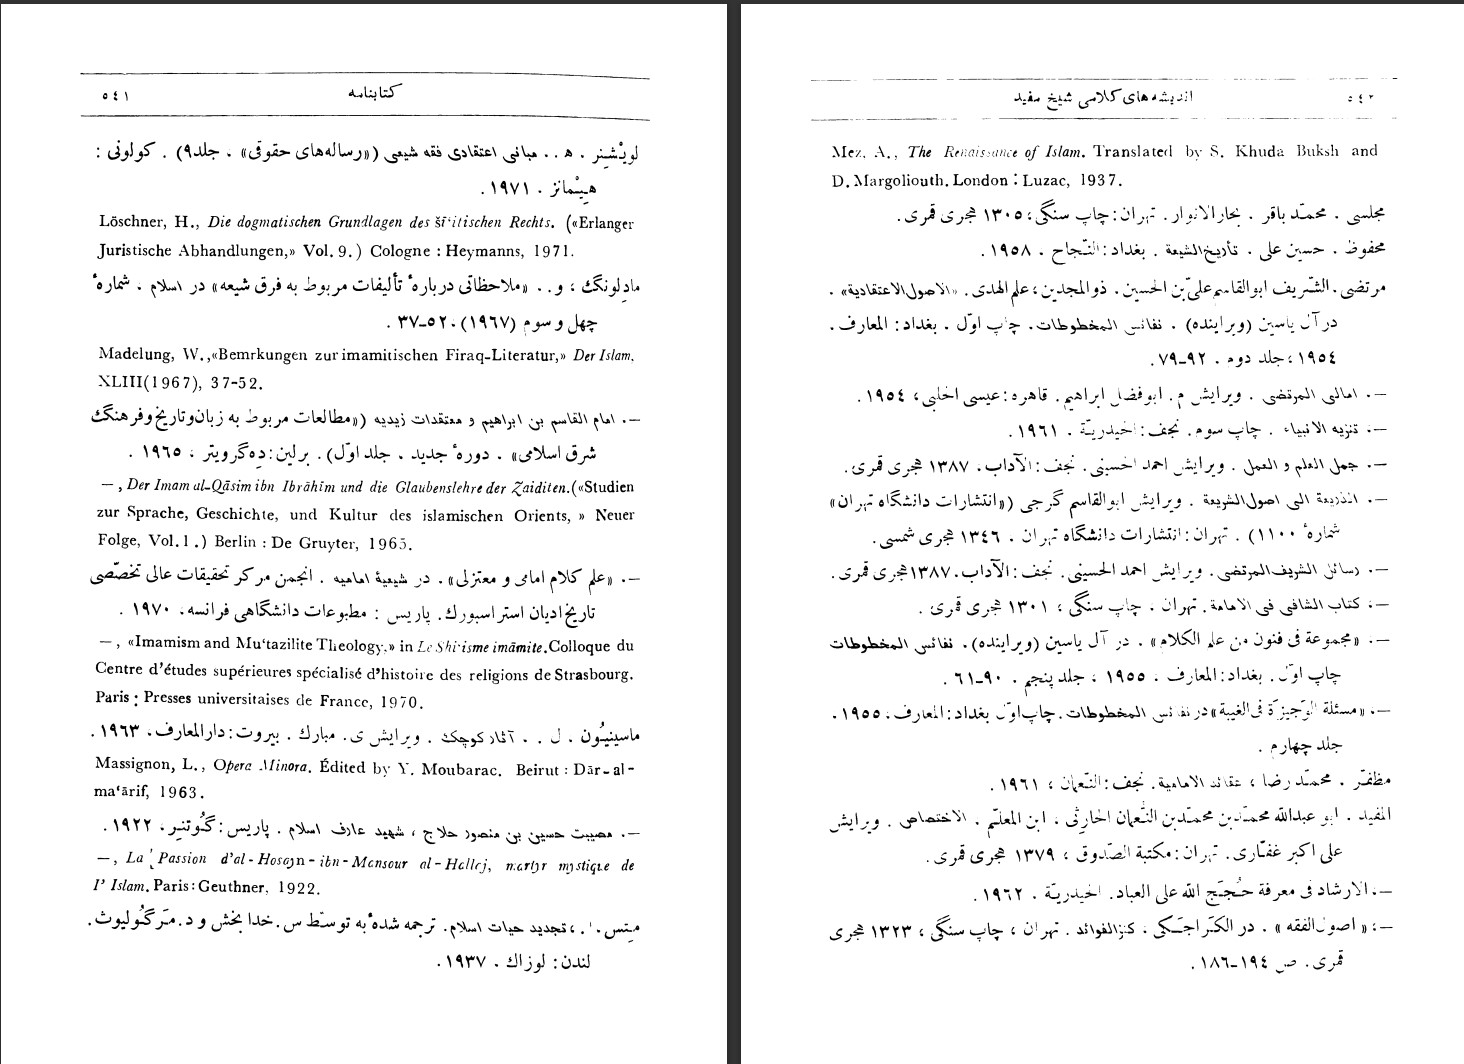 ٥٤١
کتابنامه
لویْشنِر . ه . . مبانی اعتقادی فقه شیعی («رساله‌های حقوقی» ، جلد۹) . کولونی :
هیِنْمانز . ۱۹۷۱ .
Löschner, H., Die dogmatischen Grundlagen des šī‘itischen Rechts. («Erlanger
Juristische Abhandlungen,» Vol. 9.) Cologne : Heymanns, 1971.
مادِلونگ ، و. . «ملاحظاتی دربارهٔ تألیفات مربوط به فرق شیعه» در اسلام . شمارهٔ
چهل و سوم (۱۹٦۷) ، ٥۲-۳۷ .
Madelung, W.,«Bemrkungen zur imamitischen Firaq-Literatur,» Der Islam.
XLIII(1967), 37-52.
— . امام القاسم بن ابراهیم و معتقدات زیدیه («مطالعات مربوط به زبان‌و‌تاریخ‌و‌فرهنگ
شرق اسلامی» . دورهٔ جدید . جلد اوّل) . برلین : دِه‌گرویتر ، ۱۹٦٥ .
— , Der Imam al-Qāsim ibn Ibrāhīm und die Glaubenslehre der Zaiditen.(«Studien
zur Sprache, Geschichte, und Kultur des islamischen Orients, » Neuer
Folge, Vol. 1 .) Berlin : De Gruyter, 1965.
— . «علم کلام امامی و معتزلی» . در شیعیهٔ امامیه . انجمن مرکز تحقیقات عالی تخصّصی
تاریخ ادیان استراسبورک. پاریس : مطبوعات دانشگاهی فرانسه ، ۱۹۷۰ .
— , «Imamism and Mu‘tazilite Theology,» in Le Shi‘isme imāmite. Colloque du
Centre d'études supérieures spécialisé d'histoire des religions de Strasbourg.
Paris : Presses universitaises de France, 1970.
ماسینیُون . ل . . آثار کوچک . ویرایش ی. مبارك . بیروت : دارالمعارف ، ۱۹٦۳ .
Massignon, L., Opera Minora. Édited by Y. Moubarac. Beirut : Dār-al-
ma‘ārif, 1963.
— . مصیبت حسین بن منصور حلاج ، شهید عارف اسلام . پاریس : گُوتنِر ، ۱۹۲۲ .
—, La Passion d'al-Hosayn-ibn-Mansour al-Hallaj, martyr mystique de
l' Islam. Paris : Geuthner, 1922.
مِتس . ، تجدید حیات اسلام. ترجمه شده به توسّط س. خدا بخش و د. مَرگُولیوث .
لندن : لوزاك . ۱۹۳۷ .
اندیشه‌های کلامی شیخ مفید
٥٤۲
Mez, A., The Renaissance of Islam. Translated by S. Khuda Buksh and
D. Margoliouth. London : Luzac, 1937.
مجلسی . محمّد باقر . بحارالانوار . تهران : چاپ سنگی ، ۱۳۰٥ هجری قمری .
محفوظ . حسین علی . تأریخ‌الشیعة . بغداد : النّجاح . ۱۹٥۸ .
مرتضی . الشّریف ابوالقاسم علیّ بن الحسین . ذوالمجدین ، علم الهدی . «الاصول‌الاعتقادیة» .
در آل یاسین (ویراینده) . نفائس المخطوطات . چاپ اوّل . بغداد : المعارف .
۱۹٥٤ ، جلد دوم . ۹۲-۷۹ .
— . امالی المرتضی . ویرایش م. ابوفضل ابراهیم . قاهره : عیسی الحلبی ، ۱۹٥٤ .
— . تنزیه الانبیاء . چاپ سوم . نجف : الحیدریّة . ۱۹٦۱ .
— . جمل العلم و العمل . ویرایش احمد الحسینی . نجف : الآداب ، ۱۳۸۷ هجری قمری .
— . الذریعة الی اصول‌الشریعة . ویرایش ابوالقاسم گرجی («انتشارات دانشگاه تهران»
شمارهٔ ۱۱۰۰) . تهران : انتشارات دانشگاه تهران . ۱۳٤٦ هجری شمسی .
— . رسائل الشریف‌المرتضی . ویرایش احمد الحسینی . نجف : الآداب . ۱۳۸۷ هجری قمری .
— . کتاب الشافی فی الامامة . تهران . چاپ سنگی ، ۱۳۰۱ هجری قمری .
— . «مجموعة فی فنون من علم الکلام» . در آل یاسین (ویراینده) . نفائس المخطوطات
چاپ اوّل . بغداد : المعارف ، ۱۹٥٥ ، جلد پنجم . ۹۰-٦۱ .
— . «مسئلة الوَجیزَة فی‌الغیبة» در نفائس المخطوطات . چاپ اوّل بغداد : المعارف ، ۱۹٥٥ ،
جلد چهارم .
مظفّر . محمّد رضا ، عقائد الامامیة . نجف : النّعمان ، ۱۹٦۱ .
المفید . ابو عبدالله محمّدبن محمّدبن النُّعمان الحارثی . ابن المعلّم . الاختصاص . ویرایش
علی اکبر غفّاری . تهران : مکتبة الصّدوق ، ۱۳۷۹ هجری قمری .
— . الارشاد فی معرفة حُجَج الله علی العباد . الحیدریّة . ۱۹٦۲ .
— . «اصول‌الفقه» . در الکَراجَکی ، کنزالفوائد . تهران ، چاپ سنگی ، ۱۳۲۳ هجری
قمری . ص ۱۹٤-۱۸٦ .